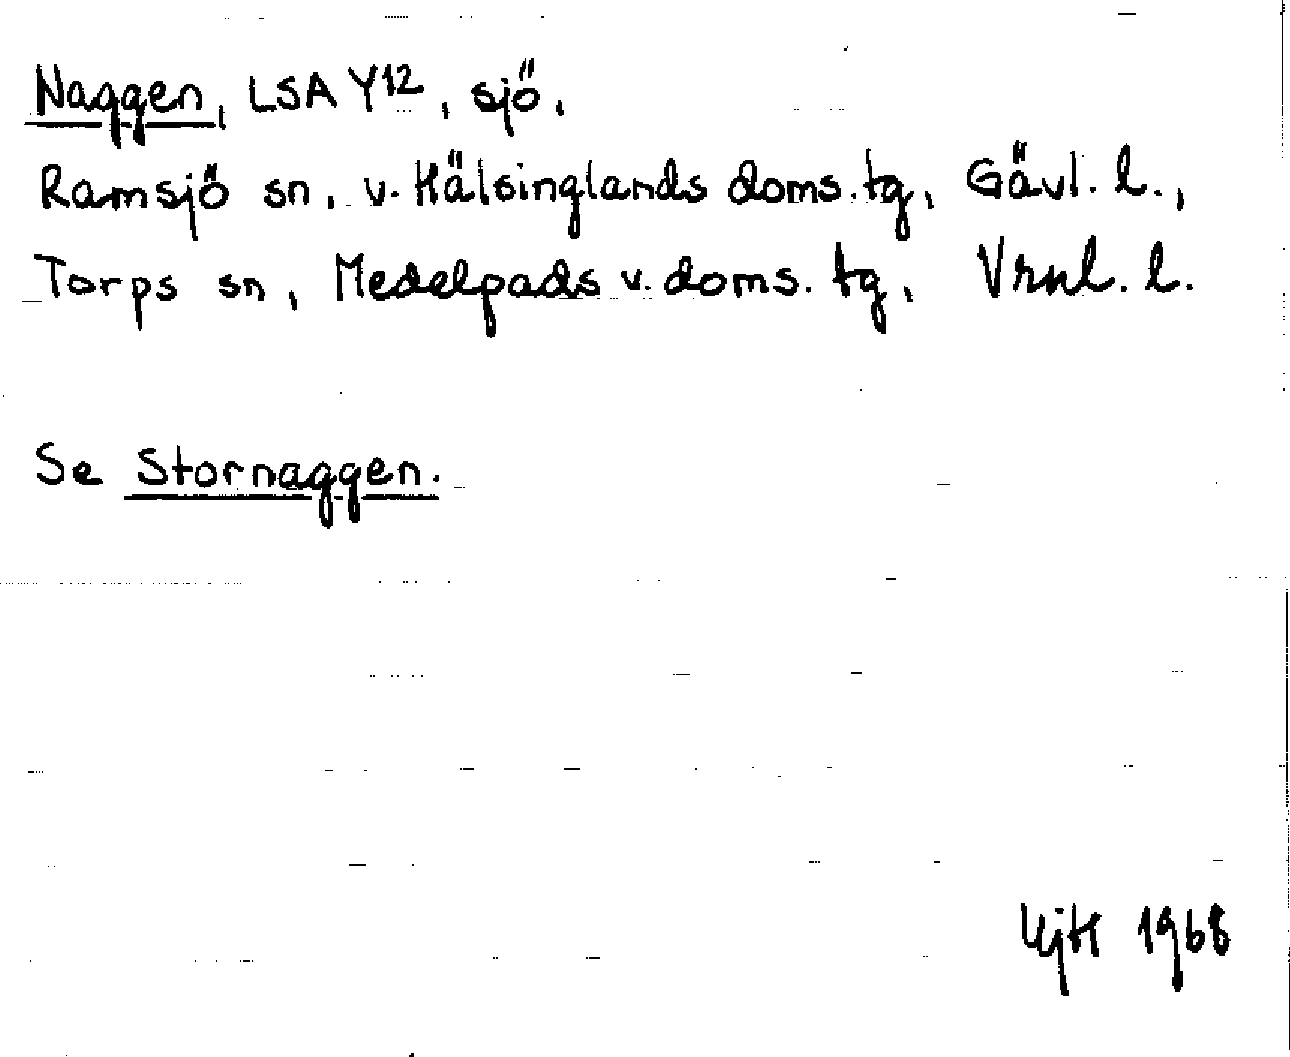 Naggen, LSA Y12, sjö.
Ramsjö sn, v. Hälsinglands doms. tg, Gävl. l.,
Torps sn, Medelpads v. doms. tg, Vrnl. l.
Se Stornaggen.
1968